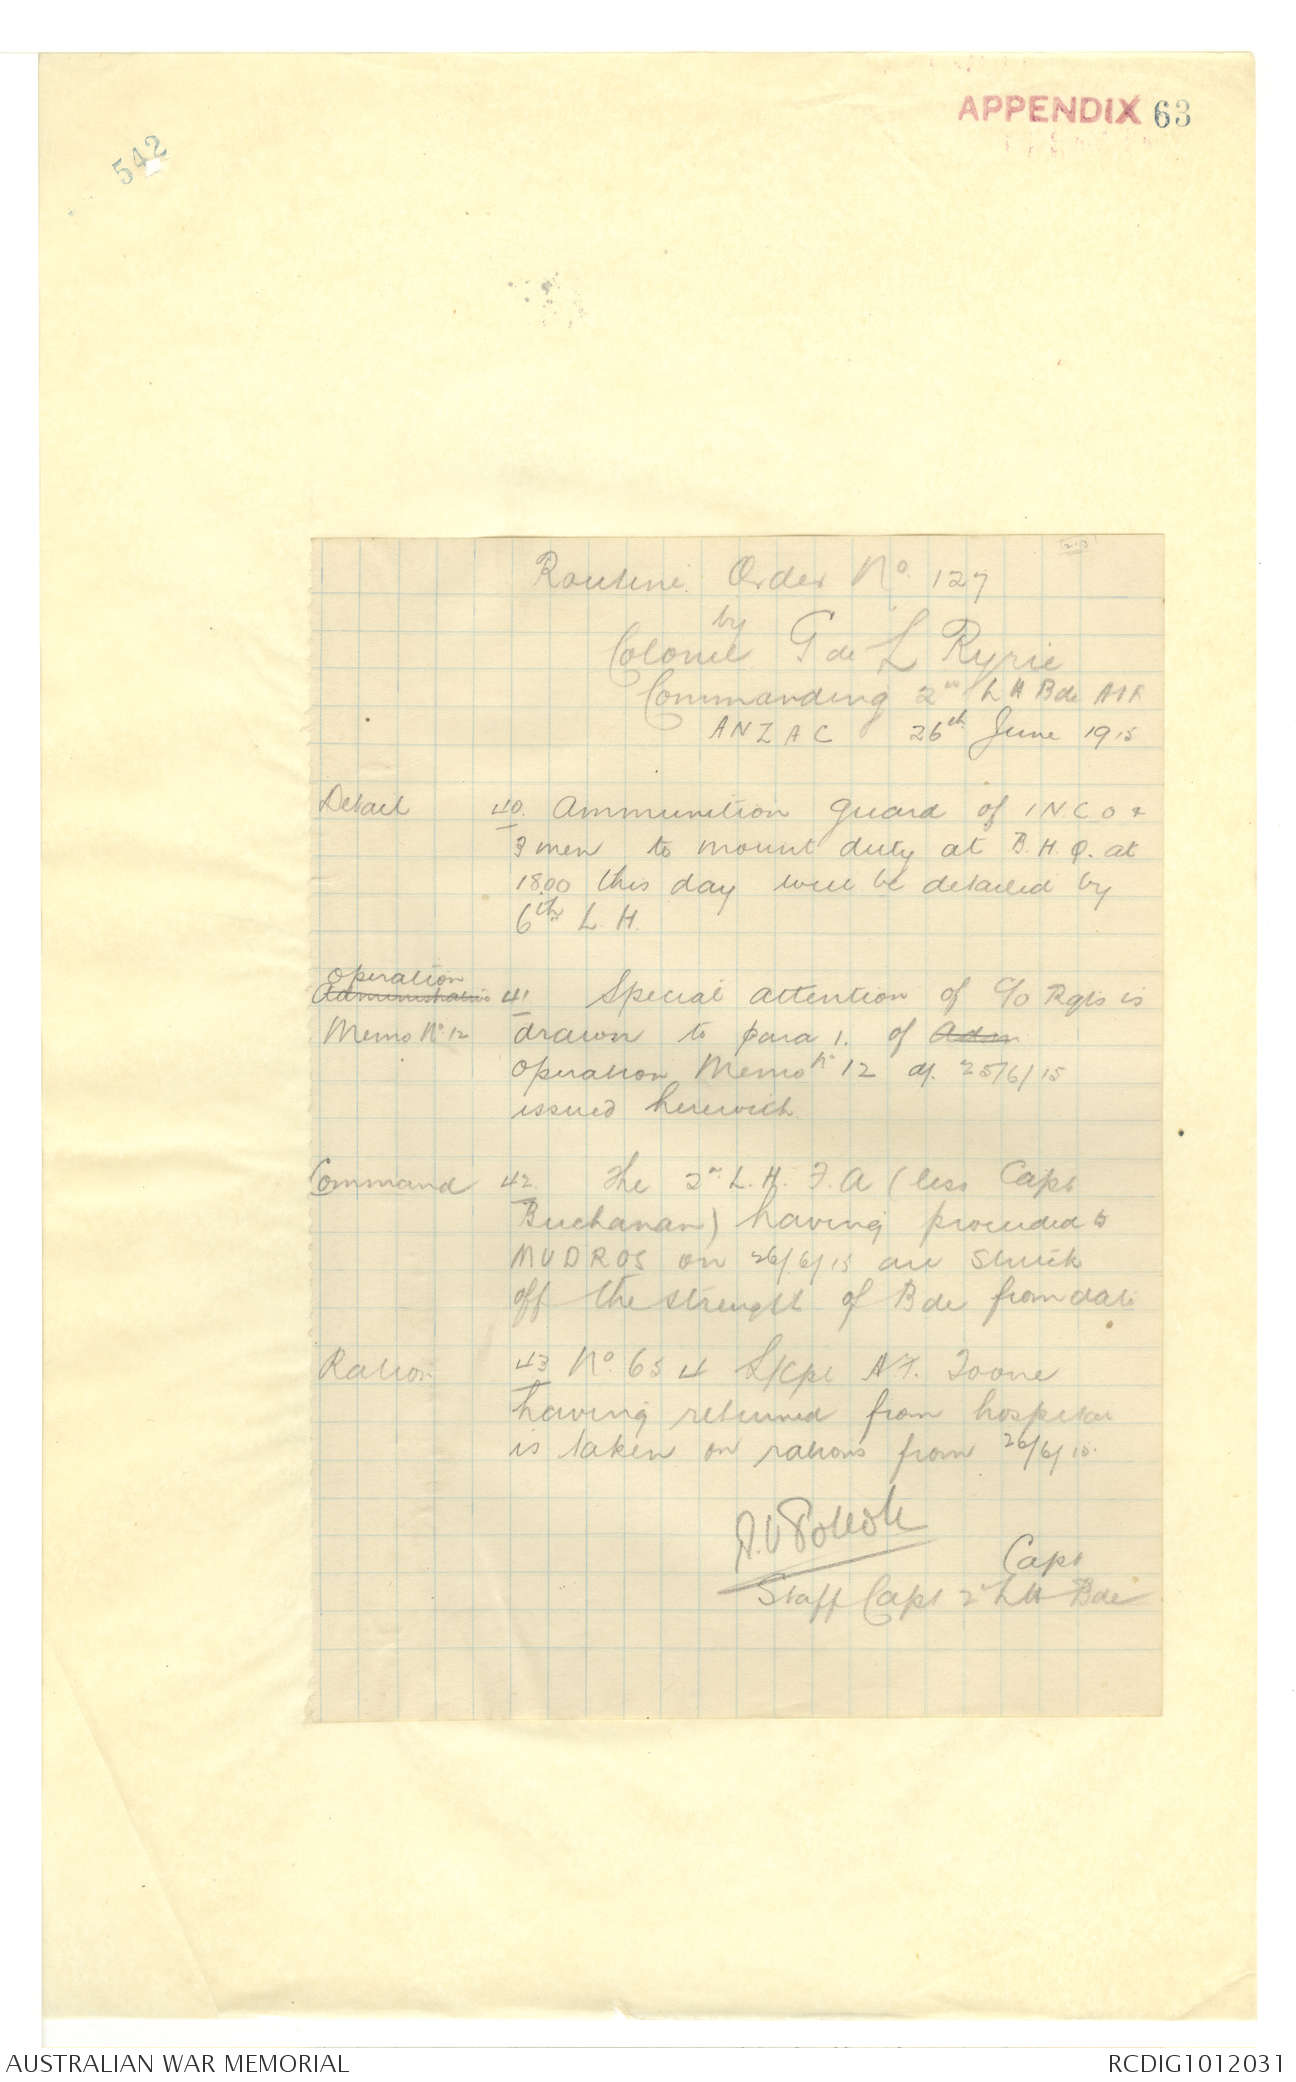 APPENDIX 63
542
Routine Order No. 127
by
Colonel G de L Ryrie
Commanding 2nd L H Bde AIF
ANZAC 26th June 1915
Detail 40. Ammunition guard of 1 N.C.O &
3 men to mount duty at B.H.Q. at
1800 this day will be detailed by
6th L.H.
Operation
Administratio 41 Special attention of C/O Rgts is
Memo No 12 drawn to para 1. of Adm
operation Memo No 12 of 25/6/15
issued herewith
Command 42. The 2nd L.H. F.A (less Capt
Buchanan) having proceeded to
MUDROS on 26/6/15 are struck
off the strength of Bde from date
Ration 43 No. 654 L/Cpl A.F. Toone
having returned from hospital
is taken on rations from 26/6/15.
Capt
Staff Capt 2nd LH Bde
AUSTRALIAN WAR MEMORIAL
RCDIG1012031